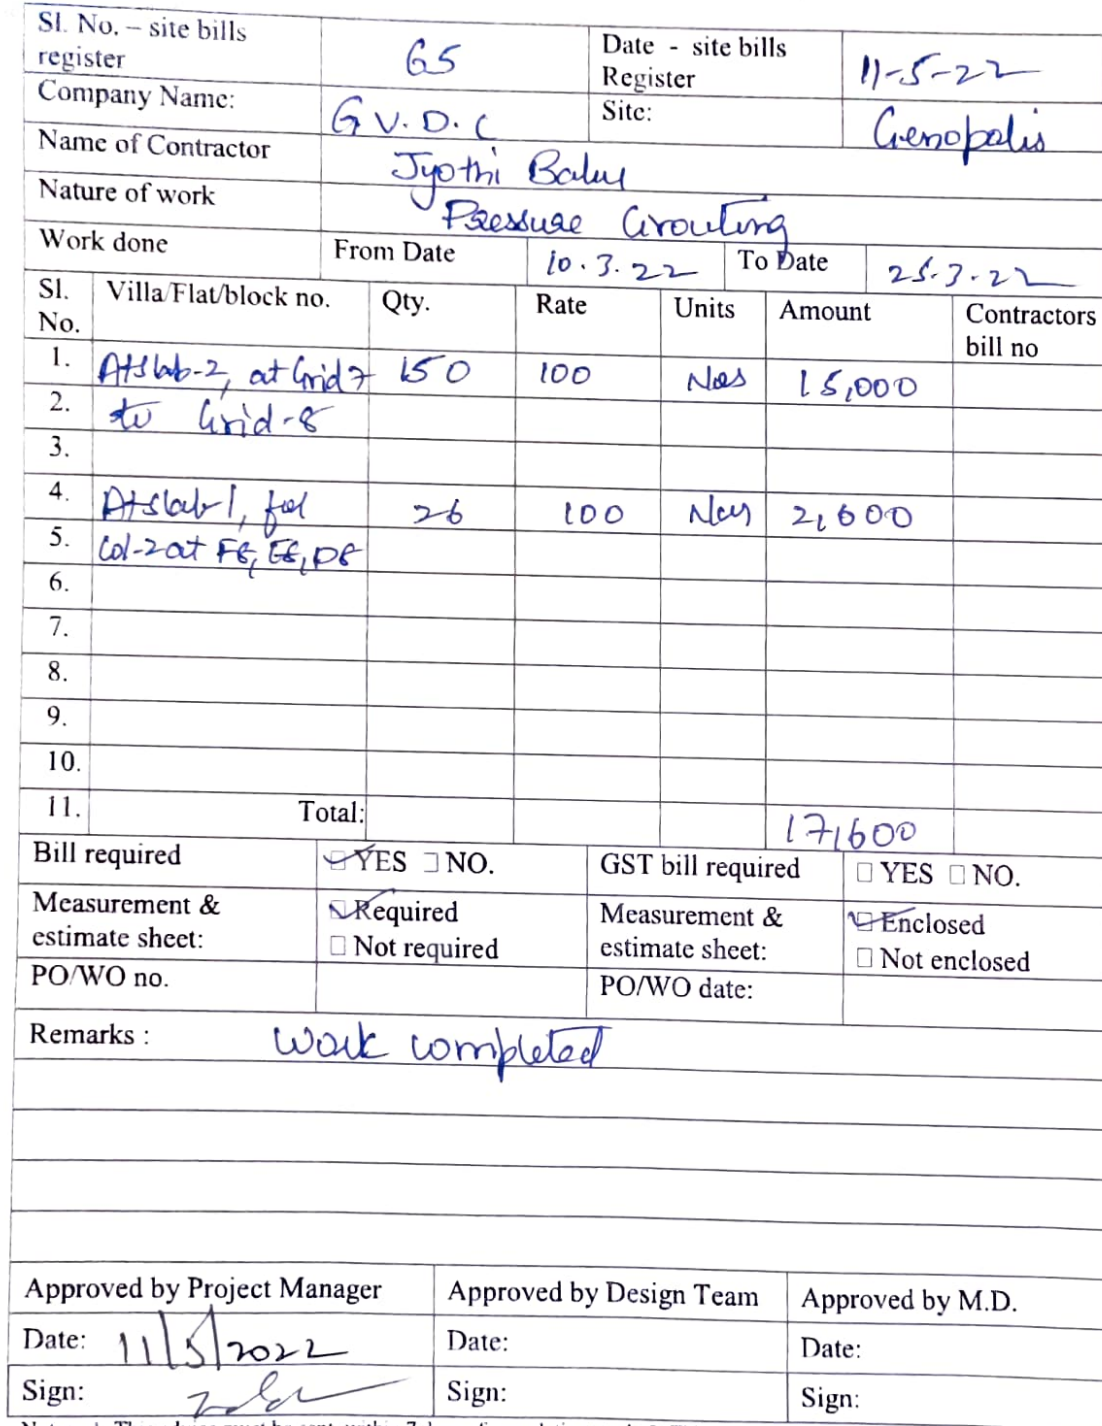 Sl. No. – site bills register 65 Date - site bills Register 11-5-22
Company Name: G V. D. C Site: Genopolis
Name of Contractor Jyothi Babu
Nature of work Pressure Grouting
Work done From Date 10.3.22 To Date 25.3.22
Sl. No. Villa/Flat/block no. Qty. Rate Units Amount Contractors bill no
1. At slab-2, at Grid 7 150 100 Nos 15,000
2. to Grid-8
3.
4. At slab-1, for 26 100 Nos 2,600
5. Col-2 at F8, E8, D8
6.
7.
8.
9.
10.
11. Total: 17,600
Bill required YES NO. GST bill required YES NO.
Measurement & estimate sheet: Required Not required Measurement & estimate sheet: Enclosed Not enclosed
PO/WO no. PO/WO date:
Remarks : Work completed
Approved by Project Manager Approved by Design Team Approved by M.D.
Date: 11/5/2022 Date: Date:
Sign: Sign: Sign: